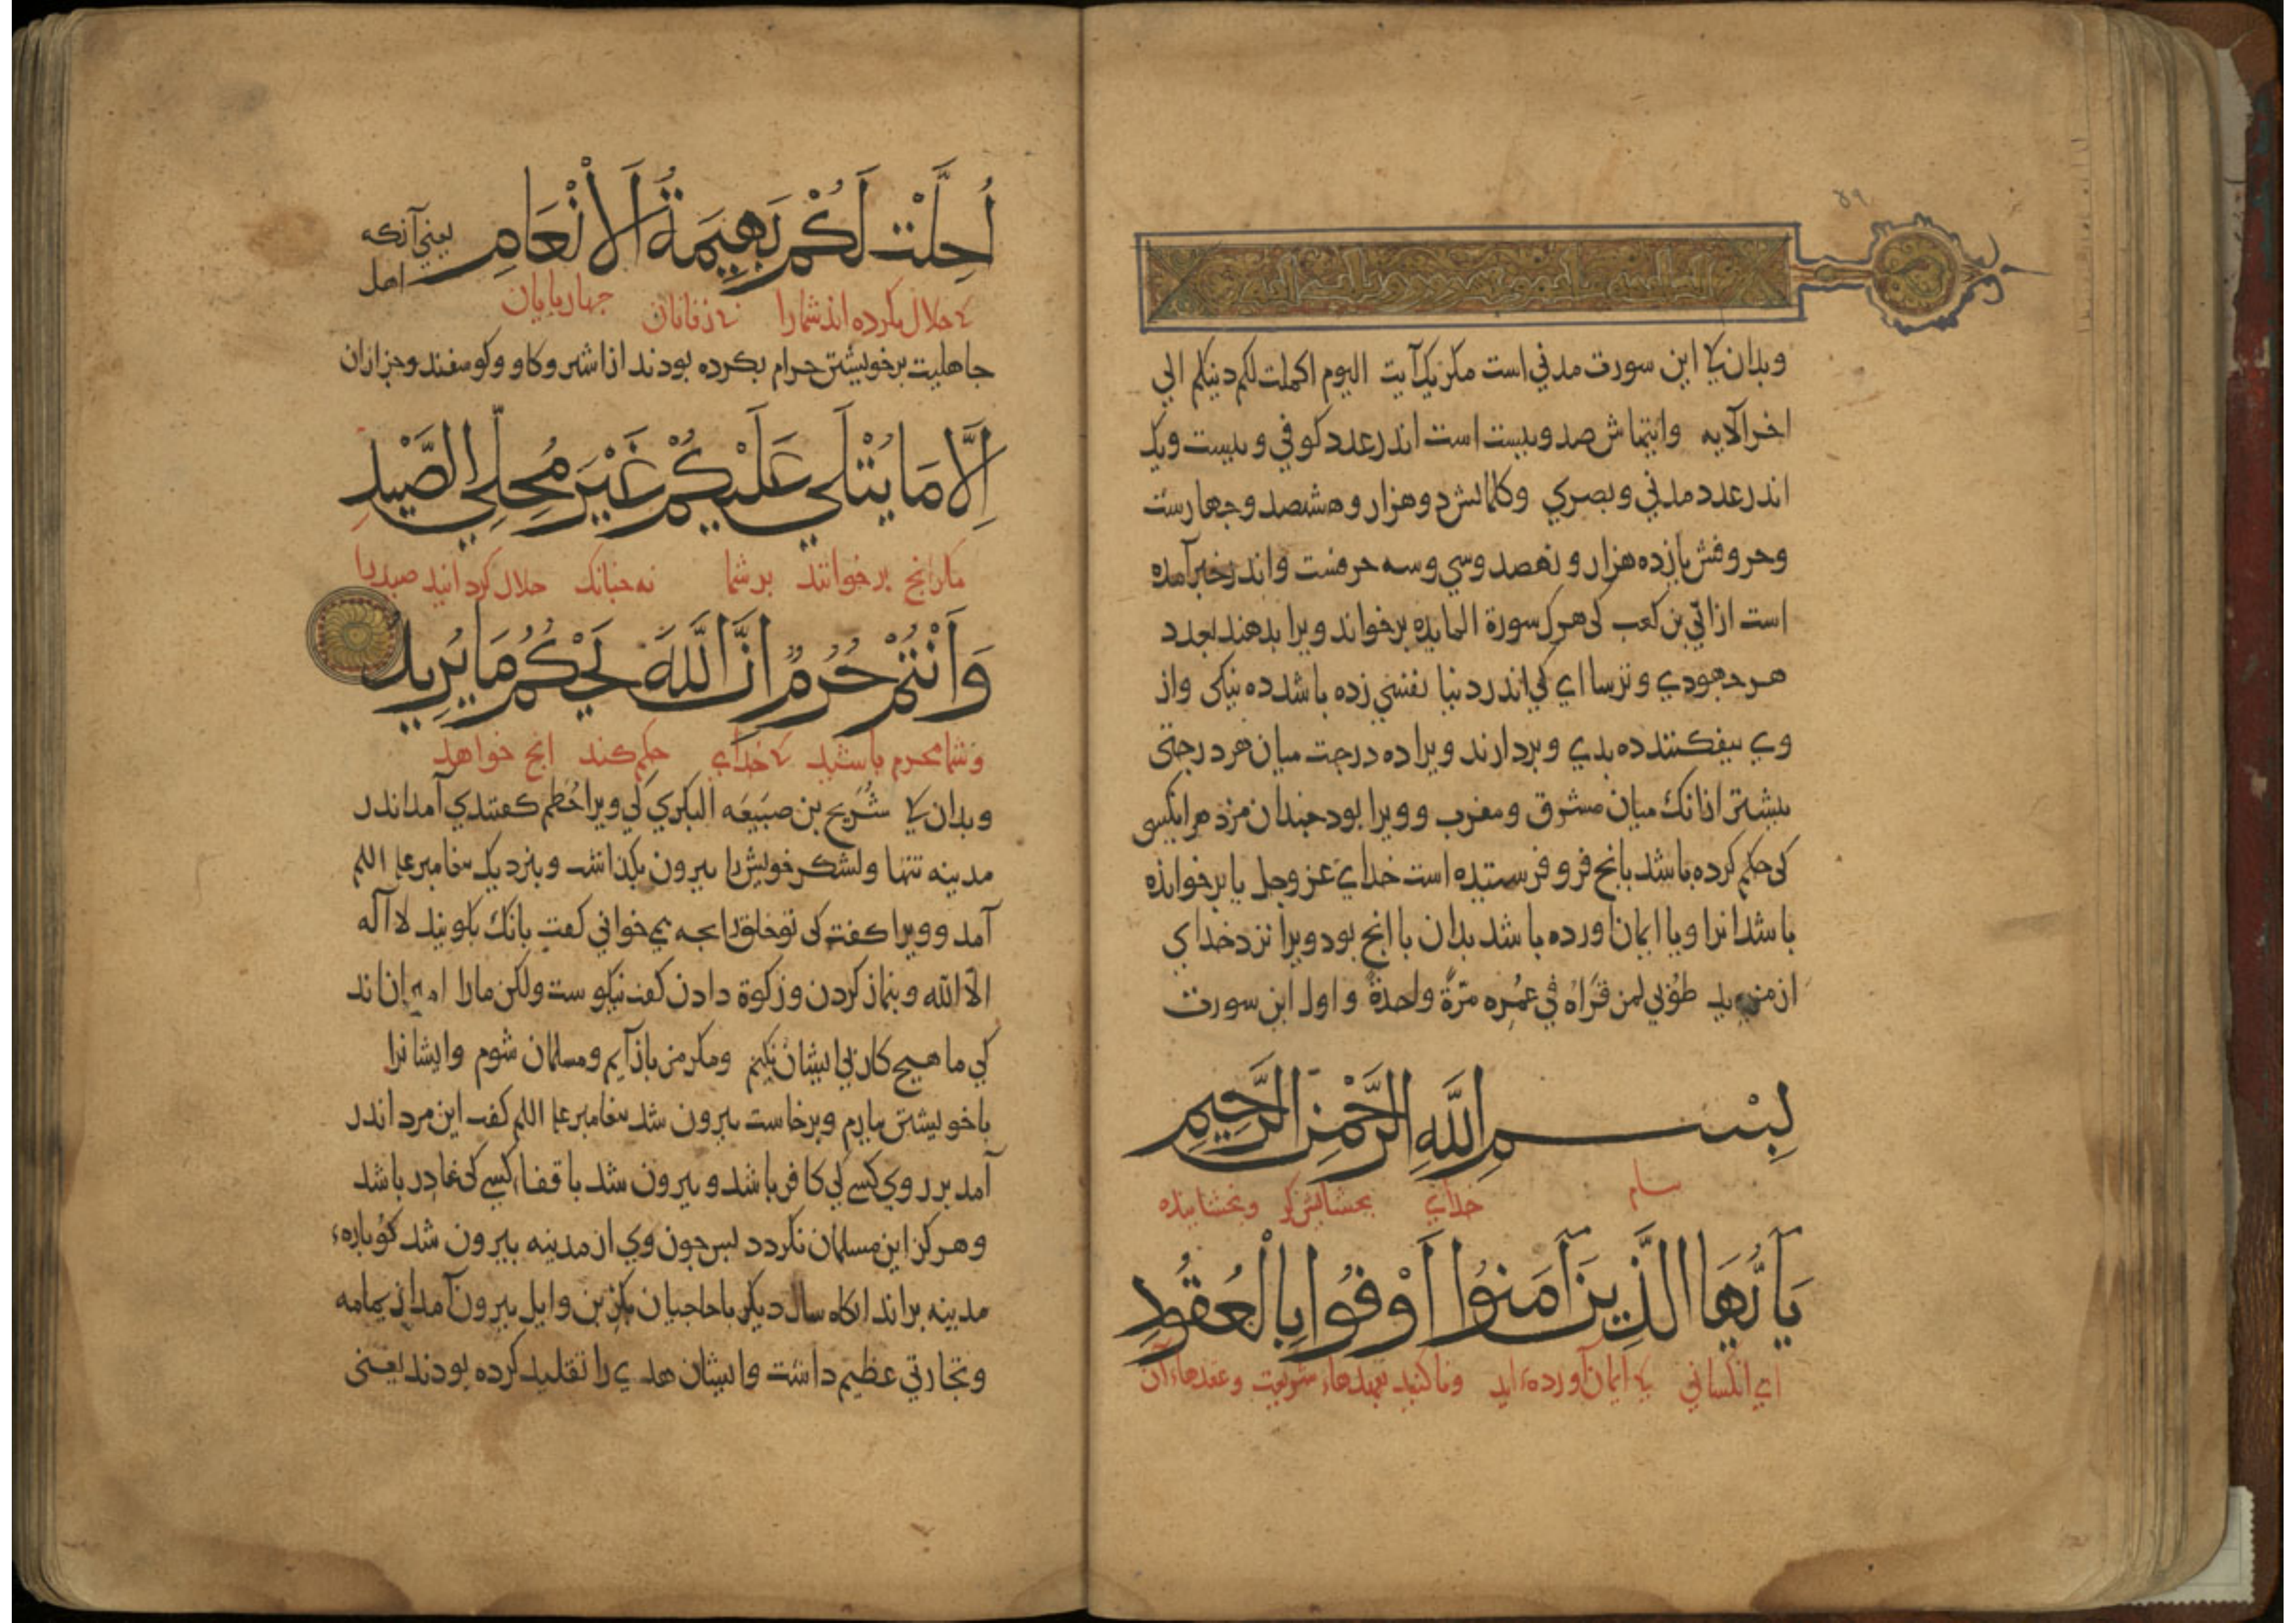 ۴۹
وبدان کی این سورت مدنی است مکر یک آیت الیوم اکملت لکم دینکم الی
اخر الآیه وایتهاش صد وبیست است اندر عدد کوفی و بیست ویک
اندر عدد مدنی و بصری وکلماتش دوهزار وهشصد وجهارست
وحروفش یازده هزار و نهصد وسی وسه حرفست واندر خبر آمده
است از ابّی بن کعب کی هرک سورة المایده برخواند ویرا بدهند بعدد
هر جهودی و ترساای کی اندر دنیا نفسی زده باشد ده نیکی واز
وی بیفکنند ده بدی وبردارند ویرا ده درجت میان هر درجتی
بیشتر ازانک میان مشرق ومغرب و ویرا بود جندان مزد هر انکسی
کی حکم کرده باشد بانج فرو فرستیده است خدای عز وجل یا برخوانده
باشد انرا ویا ایمان اورده باشد بدان با انج بود ویرا نزد خدای
از مزید طوبی لمن قراه فی عمره مرّة واحدة و اول این سورت
بِسْمِ اللَّهِ الرَّحْمٰنِ الرَّحِيمِ
بنام خدای بخشایش کر وبخشاینده
يَا أَيُّهَا الَّذِينَ آمَنُوا أَوْفُوا بِالْعُقُودِ
ای انکسانی کی ایمان آورده اید وفا کنید بعهدهاء شریعت وعقدهاء آن
أُحِلَّتْ لَكُمْ بَهِيمَةُ الْأَنْعَامِ یعنی آنکه
اهل
کی حلال بکرده اند شمارا جهاربایان
جاهلیت برخویشتن حرام بکرده بودند از اشتر وکاو وکوسفند وجز ازان
إِلَّا مَا يُتْلَى عَلَيْكُمْ غَيْرَ مُحِلِّي الصَّيْدِ
مکر انج برخوانند بر شما نه جنانک حلال کردانید صید را
وَأَنْتُمْ حُرُمٌ إِنَّ اللَّهَ يَحْكُمُ مَا يُرِيدُ
وشما محرم باشید کی خدای حکم کند انج خواهد
وبدان کی شُرَیح بن ضبیعه البکری کی ویرا حُطَم کفتندی آمد اندر
مدینه تنها ولشکر خویش را بیرون بکذاشت وبنزدیک بیغامبر علیه السلم
آمد و ویرا کفت کی تو خلق را بجه می خوانی کفت بانک بکویند لا اله
الا الله وبنماز کردن وزکوة دادن کفت نیکوست ولکن مارا امیران اند
کی ما هیج کار بی ایشان نکنیم ومکر من باز آیم ومسلمان شوم وایشانرا
باخویشتن بیارم وبرخاست بیرون شد بیغامبر علیه السلم کفت این مرد اندر
آمد بر روی کسی کی کافر باشد و بیرون شد با قفاء کسی کی غادر باشد
وهرکز این مسلمان نکردد بس جون وی از مدینه بیرون شد کوباره
مدینه براند انکاه سال دیکر با حاجیان بکر بن وایل بیرون آمد از یمامه
وتجارتی عظیم داشت وایشان هدی را تقلید کرده بودند یعنی